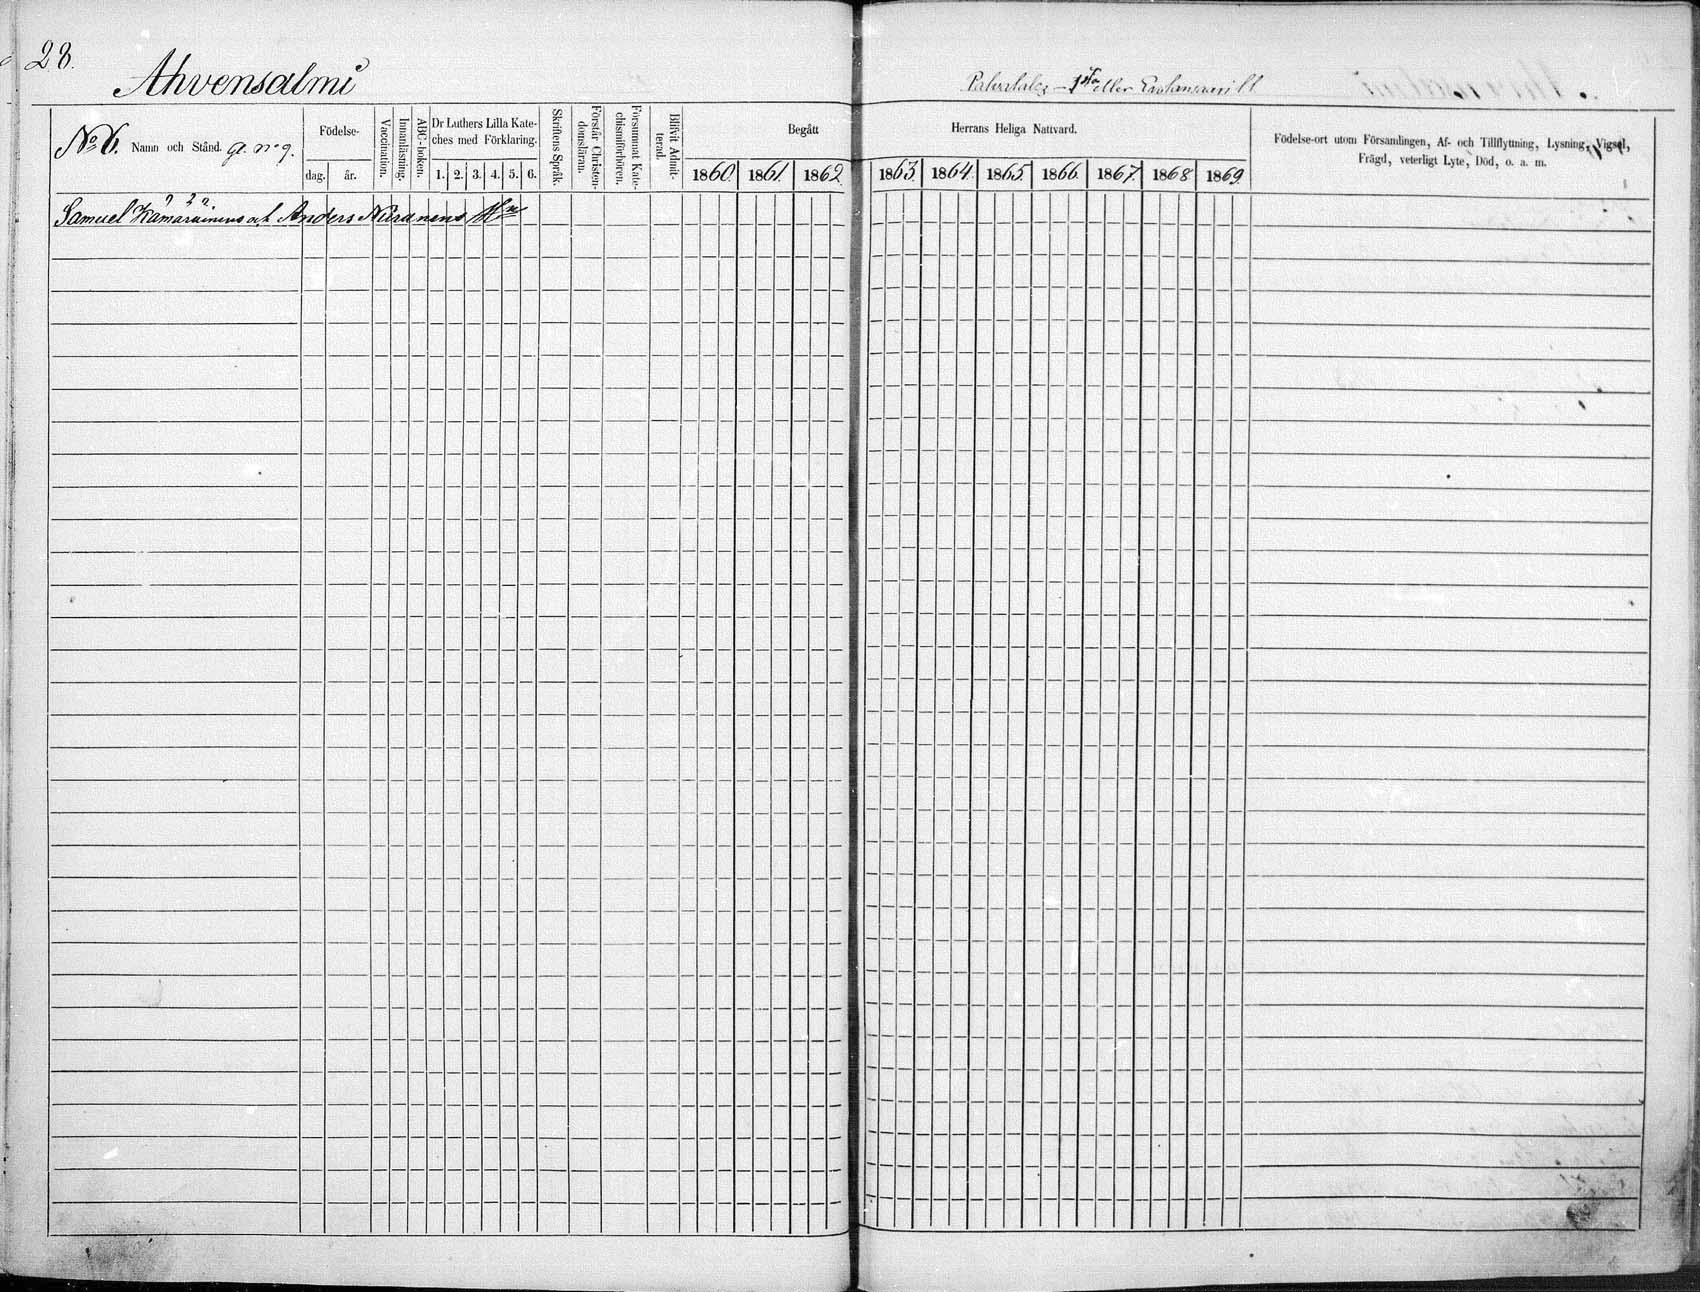 28.
Ahvensalmi
1sta eller
No 6. Namn och Stånd. g. n:o 9.
Födelse-
dag. år.
Vaccination.
Innanläsning.
ABC-boken.
Dr Luthers Lilla Kate-
ches med Förklaring.
1. 2. 3. 4. 5. 6.
Skriftens Språk.
Förstår Christen-
domsläran.
Försummat Kate-
chismiförhören.
Blifvit Admit-
terad.
Begått
1860. 1861. 1862.
Herrans Heliga Nattvard.
1863. 1864. 1865. 1866. 1867. 1868 1869.
Födelse-ort utom Församlingen, Af- och Tillflyttning, Lysning, Vigsel,
Frägd, veterligt Lyte, Död, o. a. m.
Samuel Kämäräinens och Anders Niiranens Hn